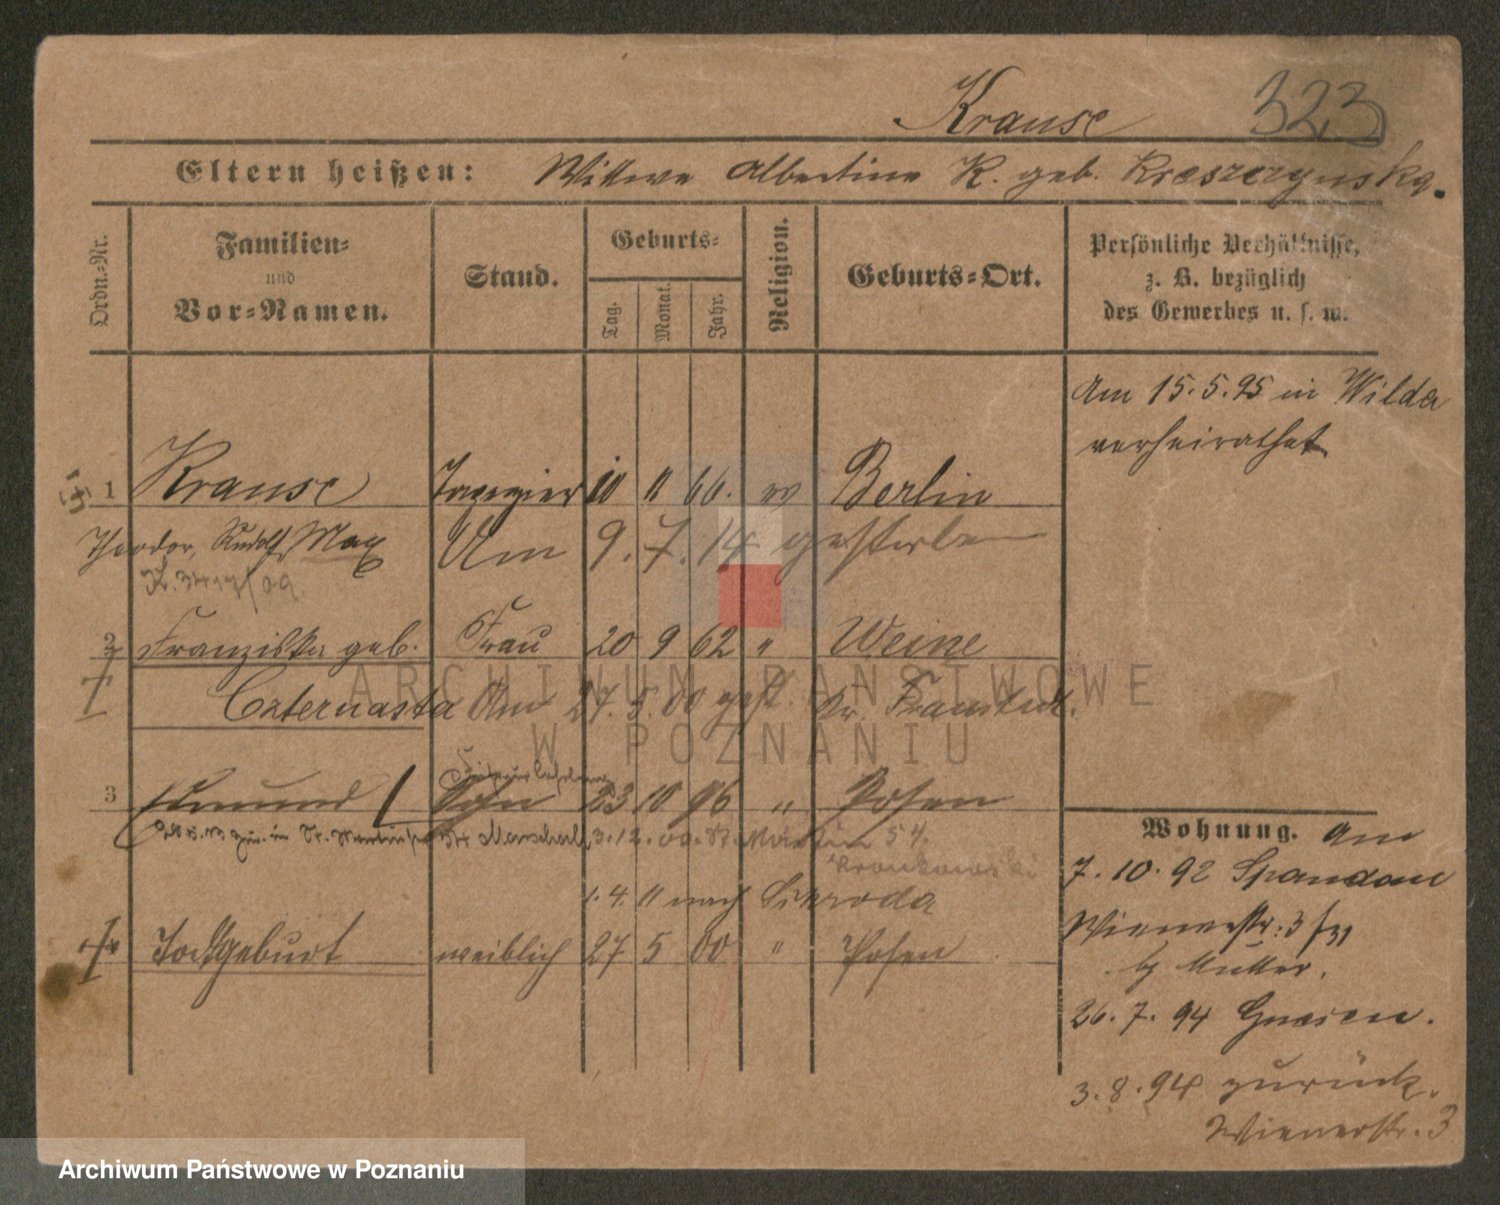 Krause 323
Eltern heißen: Wittwe Albertine K. geb. Kreszczynska.
Ordn.-Nr.
Familien-
und
Vor-Namen.
Stand.
Geburts-
Tag.
Monat.
Jahr.
Religion.
Geburts-Ort.
Persönliche Verhältnisse,
z. B. bezüglich
des Gewerbes u. s. w.
Am 15.5.95 in Wilda
verheirathet
1 Krause Tapezier 10 11 66. ev Berlin
Theodor, Rudolf, Max Am 9.7.14 gestorben
2 Franziska geb. Frau 20 9 62 " Weine
Czternasta Am 27.5.00 gest. Kr. Fraustadt.
3 Edmund Sohn 23 10 96 " Posen
3.12.00. St. Martin 54.
1.4.11 nach Schroda
4 Todtgeburt weiblich 27 5 00 " Posen
Wohnung. Am
7.10.92 Spandau
Wienerstr: 3/31
b/ Mutter.
26.7.94 Gnesen.
3.8.94 zurück.
Wienerstr. 3
ARCHIWUM PAŃSTWOWE
W POZNANIU
Archiwum Państwowe w Poznaniu